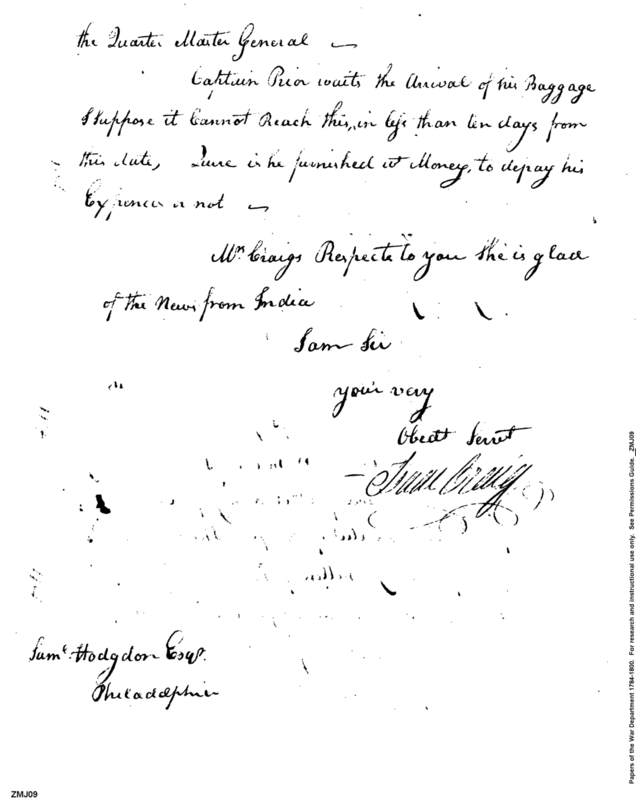 the Quarter Master General
Captain Prior waits the Arrival of his Baggage
I Suppose it Cannot Reach this, in less than ten days from
this date, Quere is he furnished wt Money, to defray his
Expences or not
Mrs Craigs Respects to you She is glad
of the News from India
I am Sir
your very
Obedt Servt
Isaac Craig
Saml Hodgdon Esqr.
Philadelphia
Papers of the War Department 1784-1800. For research and instructional use only. See Permissions Guide. _ZMJ09
ZMJ09